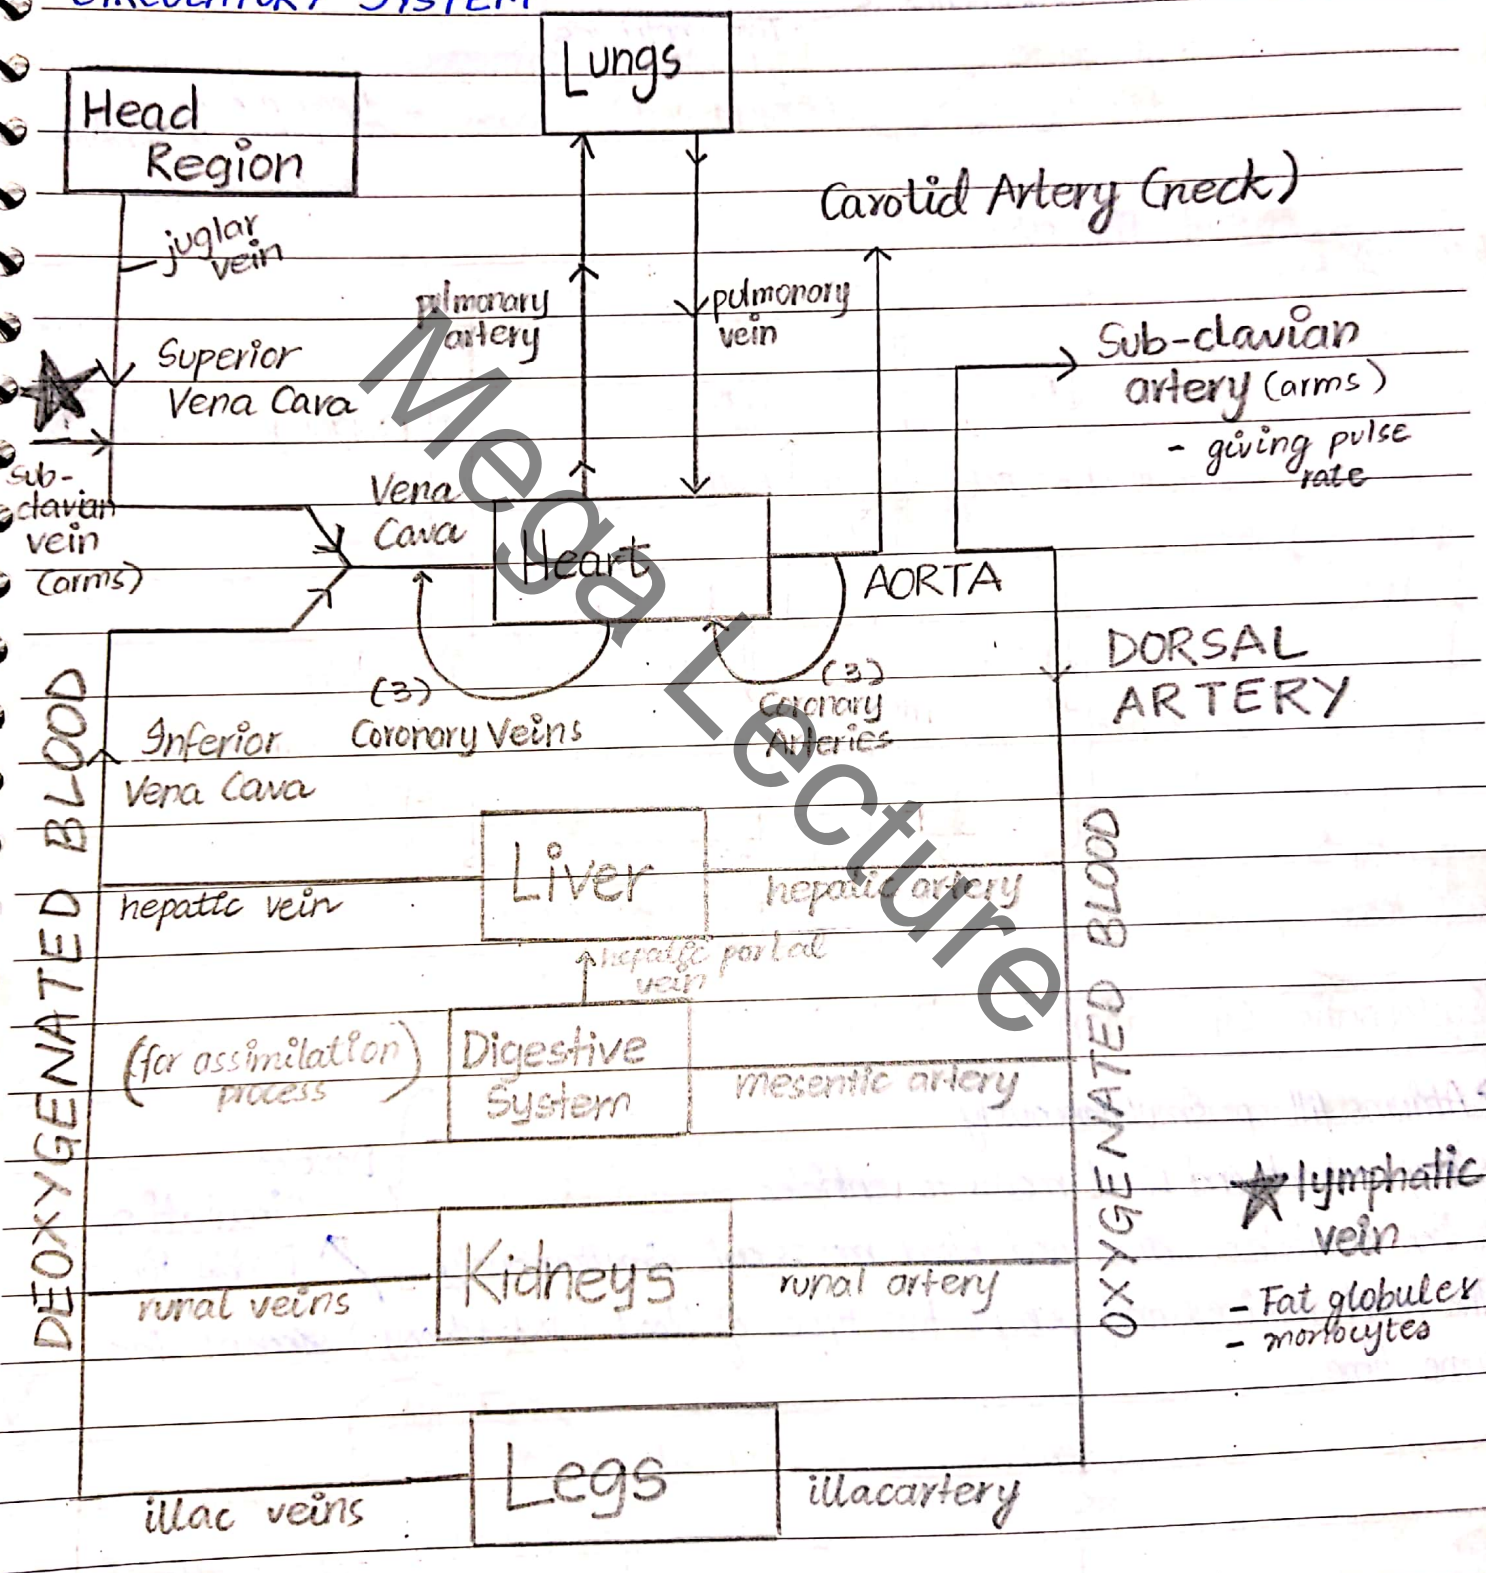 CIRCULATORY SYSTEM
Lungs
Head
Region
Carotid Artery (neck)
juglar
vein
pulmonary
artery
pulmonory
vein
Superior
Vena Cava
Sub-clavian
artery (arms)
- giving pulse
rate
Sub-
clavian
vein
(arms)
Vena
Cava
Heart
AORTA
DORSAL
ARTERY
(3)
Coronory Veins
(3)
Coronary
Arteries
Inferior
Vena Cava
DEOXYGENATED BLOOD
Liver
hepatic vein
hepatic artery
hepatic portal
vein
OXYGENATED BLOOD
(for assimilation)
process
Digestive
System
mesentic artery
lymphatic
vein
- Fat globules
- monocytes
Kidneys
runal veins
runal artery
Legs
illac veins
illacartery
Mega Lecture